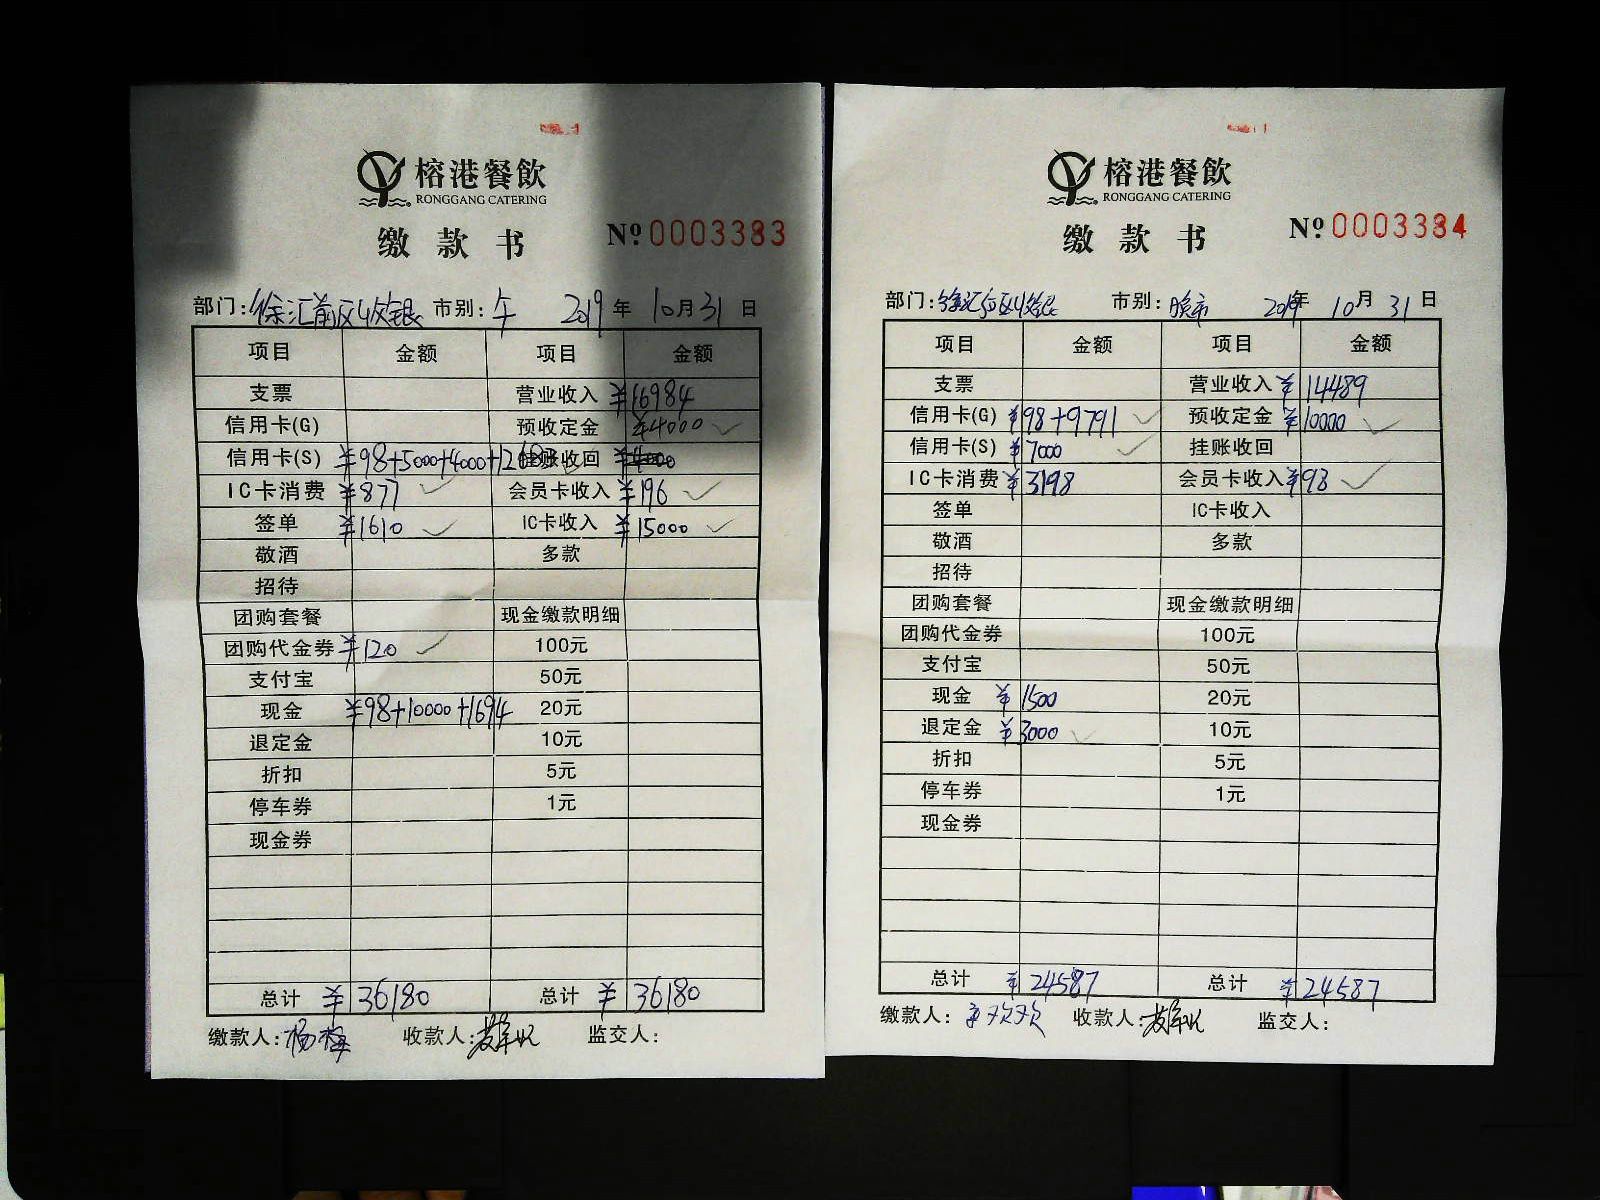 榕港餐飲
RONGGANG CATERING
缴款书
№0003383
部门:徐汇前区收银 市别:午 2019年10月31日
项目 金额 项目 金额
支票 营业收入 ¥16984
信用卡(G) 预收定金 ¥4000
信用卡(S) ¥98+5000+4000+12683 挂账收回
IC卡消费 ¥877 会员卡收入 ¥196
签单 ¥1610 IC卡收入 ¥15000
敬酒 多款
招待
团购套餐 现金缴款明细
团购代金券 ¥120 100元
支付宝 50元
现金 ¥98+10000+1694 20元
退定金 10元
折扣 5元
停车券 1元
现金券
总计 ¥36180 总计 ¥36180
缴款人:杨梅 收款人: 监交人:
榕港餐飲
RONGGANG CATERING
缴款书
№0003384
部门:徐汇前区收银 市别:晚市 2019年10月31日
项目 金额 项目 金额
支票 营业收入 ¥14489
信用卡(G) ¥98+9791 预收定金 ¥10000
信用卡(S) ¥7000 挂账收回
IC卡消费 ¥3198 会员卡收入 ¥98
签单 IC卡收入
敬酒 多款
招待
团购套餐 现金缴款明细
团购代金券 100元
支付宝 50元
现金 ¥1500 20元
退定金 ¥3000 10元
折扣 5元
停车券 1元
现金券
总计 ¥24587 总计 ¥24587
缴款人: 收款人: 监交人: